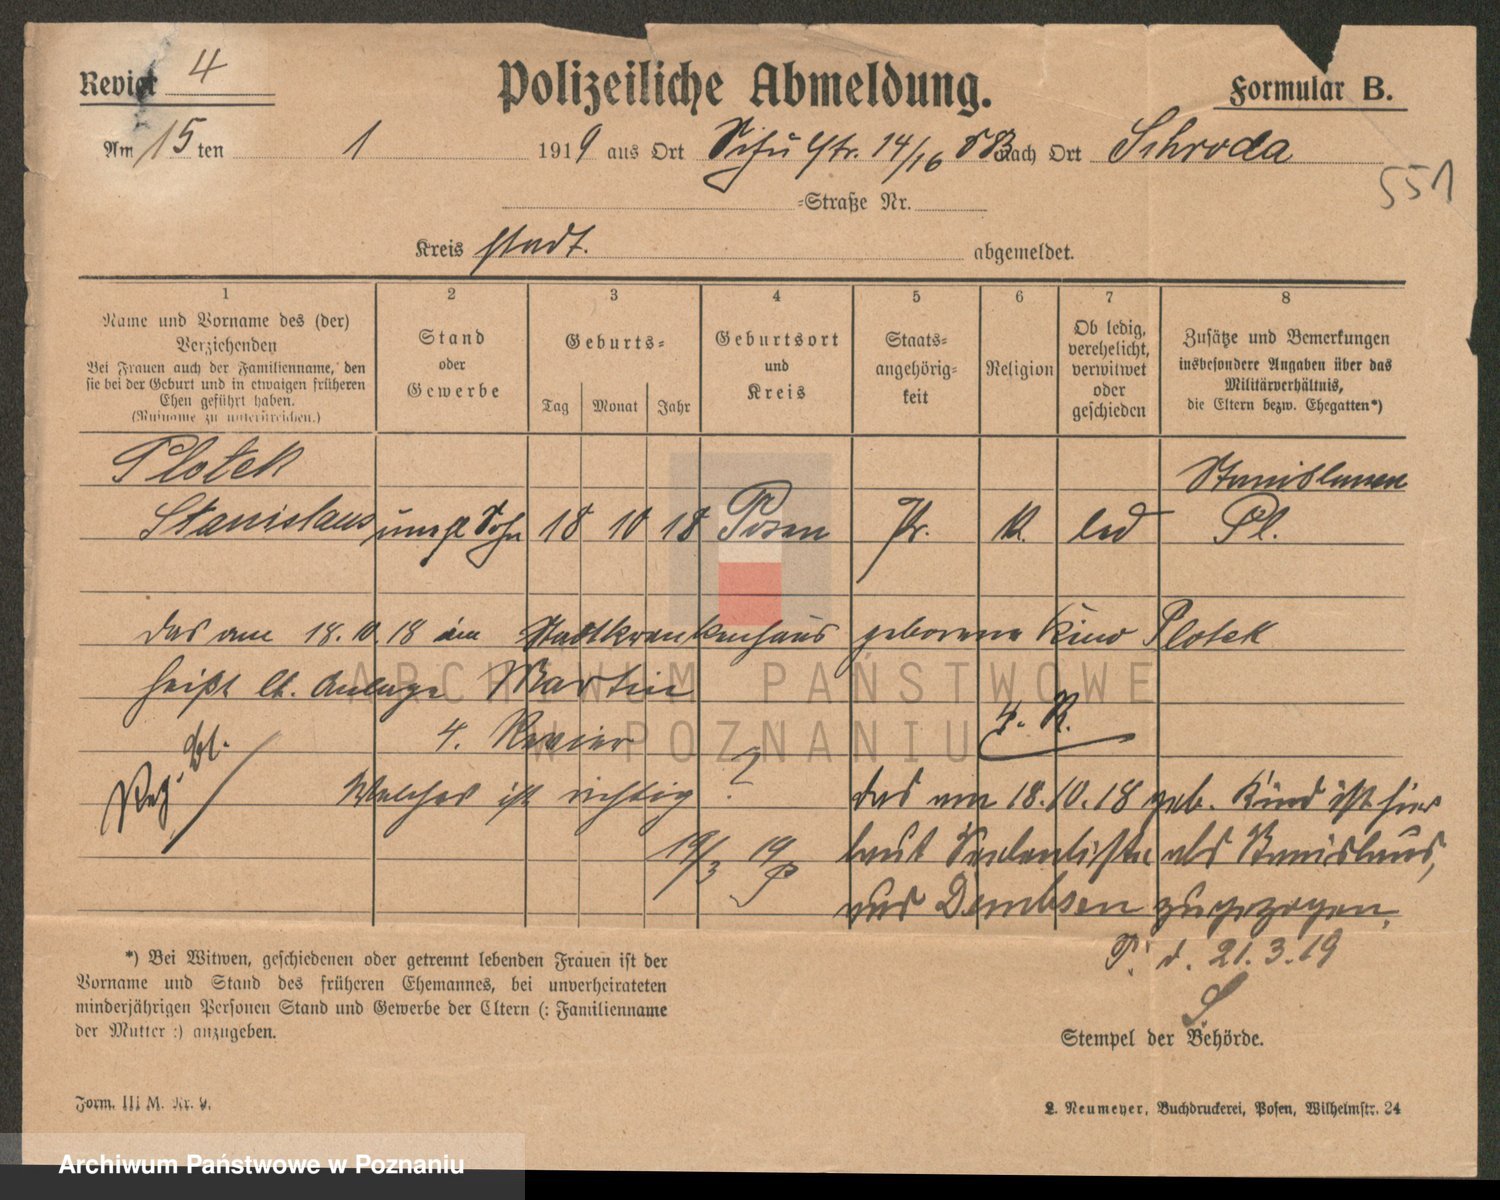 Revier 4
Polizeiliche Abmeldung.
Formular B.
Am 15 ten 1 1919 aus Ort Schulstr. 14/16 nach Ort Schroda
551
-Straße Nr.
Kreis stadt. abgemeldet.
1 2 3 4 5 6 7 8
Name und Vorname des (der)
Verziehenden
Bei Frauen auch der Familienname, den
sie bei der Geburt und in etwaigen früheren
Ehen geführt haben.
(Rufname zu unterstreichen.)
Stand
oder
Gewerbe
Geburts-
Tag Monat Jahr
Geburtsort
und
Kreis
Staats-
angehörig-
keit
Religion
Ob ledig,
verehelicht,
verwitwet
oder
geschieden
Zusätze und Bemerkungen
insbesondere Angaben über das
Militärverhältnis,
die Eltern bezw. Ehegatten*)
Plotek Stanislawa
Stanislaus unehl Sohn 18 10 18 Posen Pr. K. led Pl.
das am 18.10.18 im Stadtkrankenhaus geborene Kind Plotek
heißt lt. Anlage Martin
4. R.
4. Revier
Reg. Bl.
Welches ist richtig ?
19/3 19
das am 18.10.18 geb. Kind ist hier
laut Seelenliste als Stanislaus,
aus Dembsen zugezogen.
P. d. 21.3.19
S.
*) Bei Witwen, geschiedenen oder getrennt lebenden Frauen ist der
Vorname und Stand des früheren Ehemannes, bei unverheirateten
minderjährigen Personen Stand und Gewerbe der Eltern (: Familienname
der Mutter :) anzugeben.
Stempel der Behörde.
Form. III M. Nr. 9.
L. Neumeyer, Buchdruckerei, Posen, Wilhelmstr. 24
ARCHIWUM PAŃSTWOWE
W POZNANIU
Archiwum Państwowe w Poznaniu